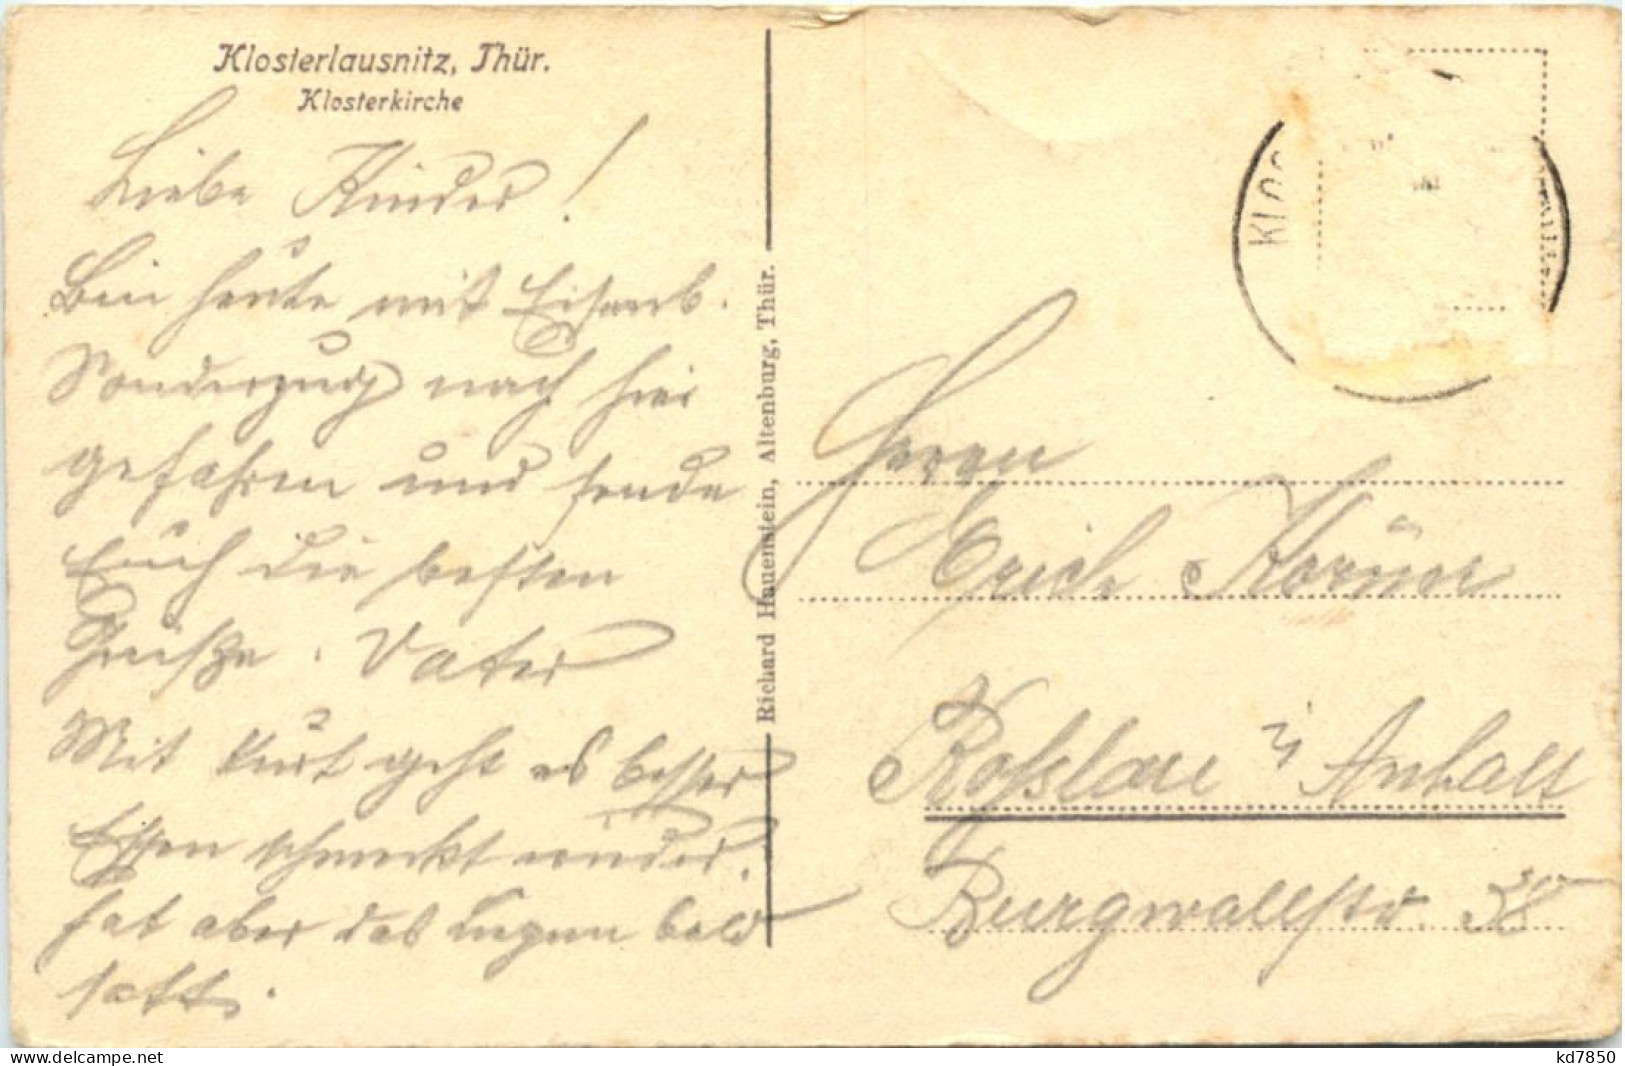 Klosterlausnitz, Thür.
Klosterkirche
Liebe Kinder!
Bin heute mit Eisenb.
Sonderzug nach hier
gefahren und sende
Euch die besten
Grüße. Vater
Mit Kurt geht es besser
Essen schmeckt wieder.
hat aber das Liegen bald
satt.
Richard Hauenstein, Altenburg, Thür.
KLOS
Herrn
Erich Körner
Rosslau i/ Anhalt
Burgwallstr. 58
www.delcampe.net
kd7850